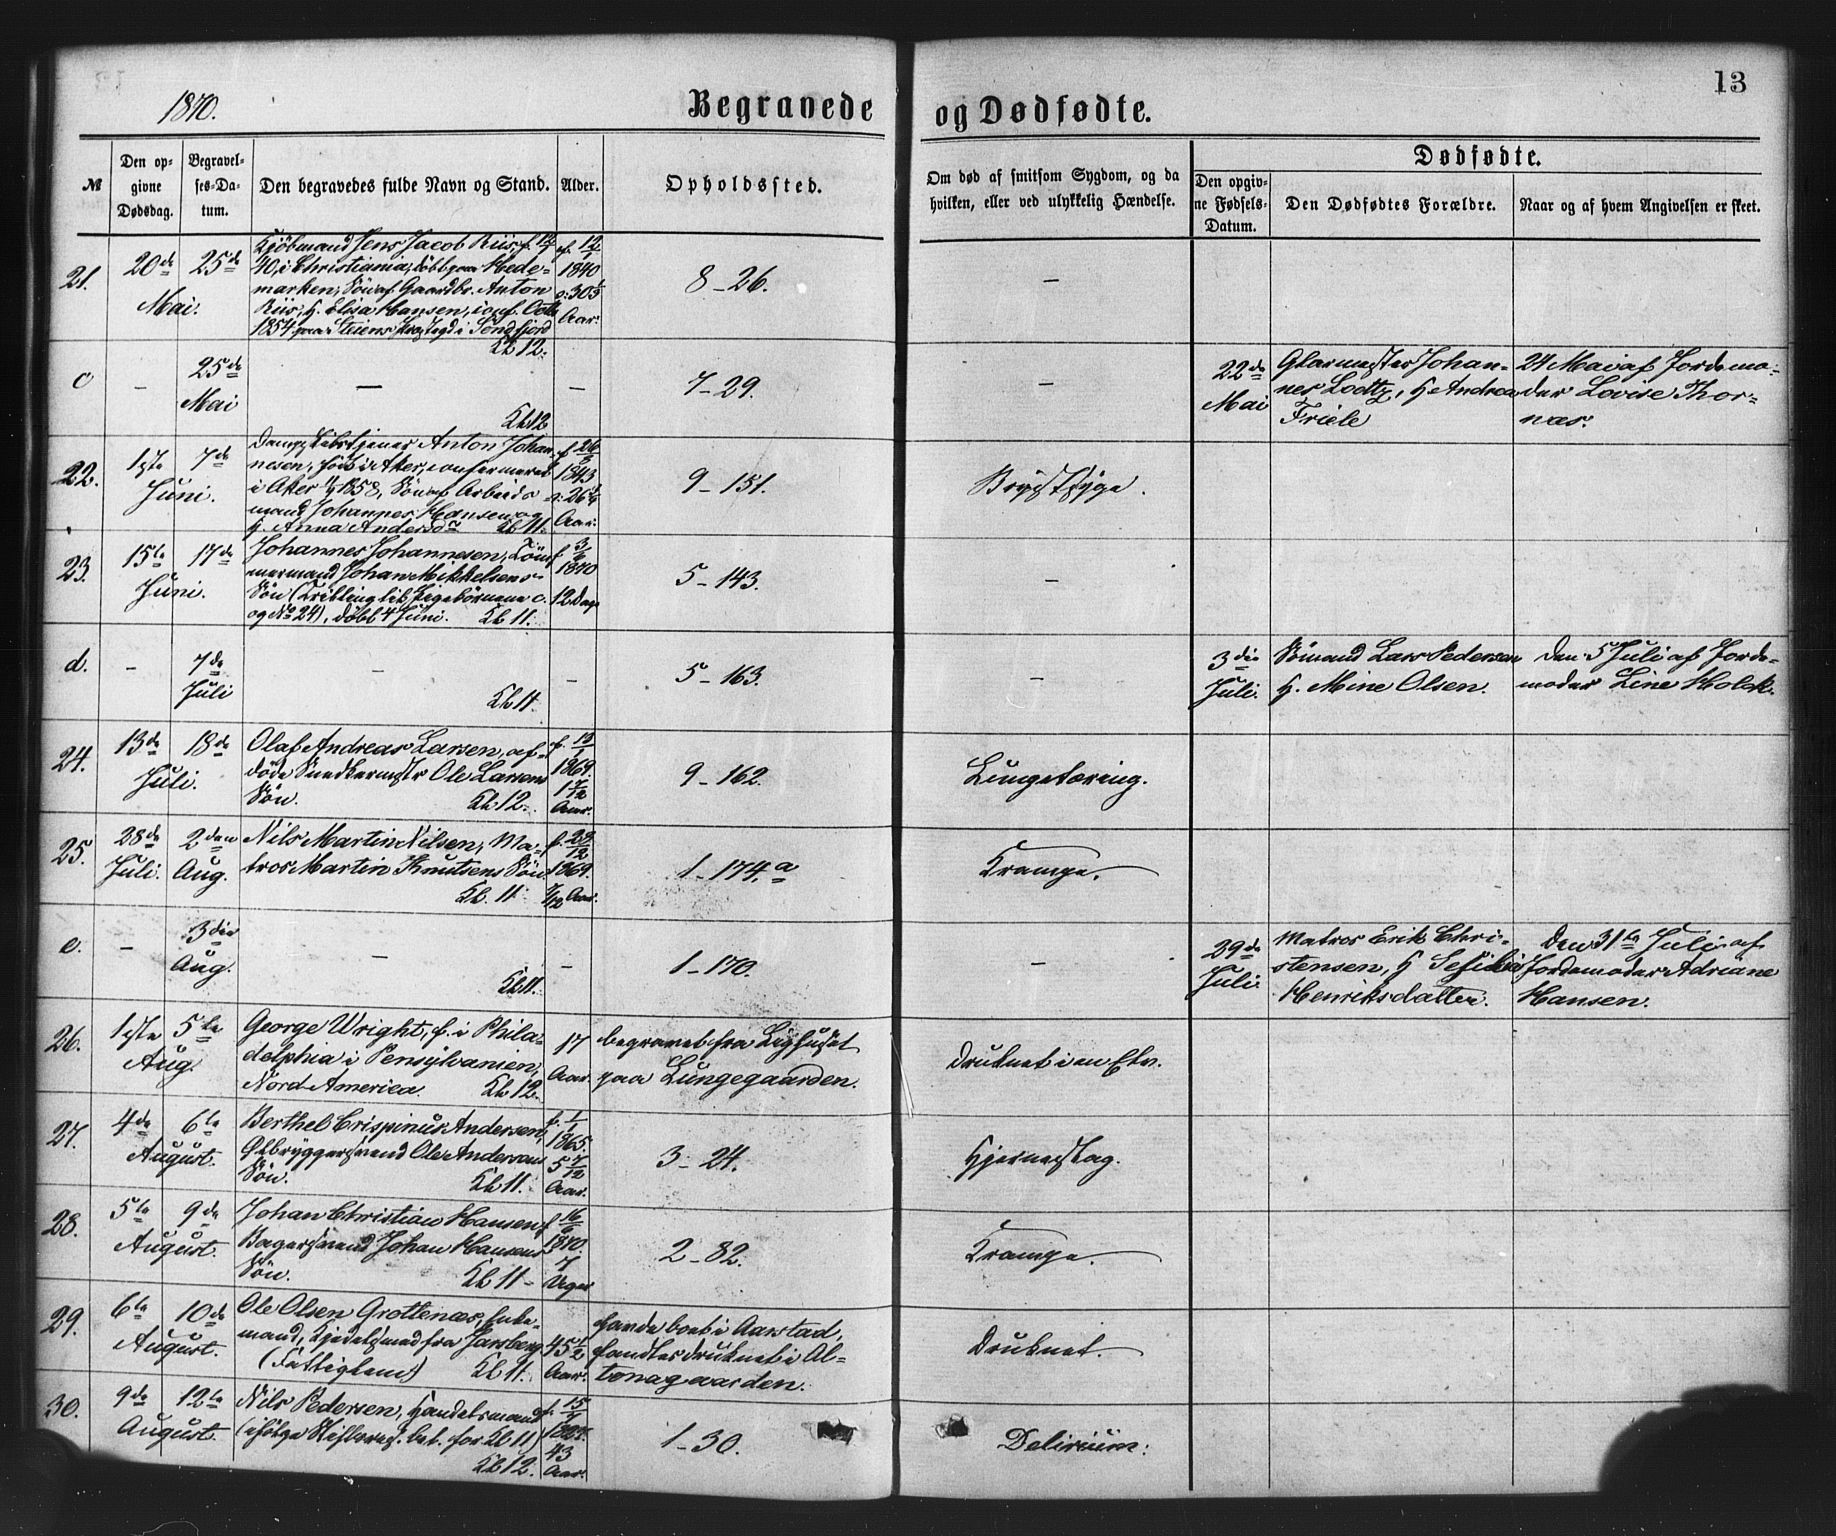 1870.
Begravede og Dødfødte.
13
№
Den opgivne Dødsdag.
Begravelses-Datum.
Den begravedes fulde Navn og Stand.
Alder.
Opholdssted.
Om død af smitsom Sygdom, og da hvilken, eller ved ulykkelig Hændelse.
Dødfødte.
Den opgivne Fødsels-Datum.
Den Dødfødtes Forældre.
Naar og af hvem Angivelsen er skeet.
21. 20de 25de
Mai.
Kjöbmand Jens Jacob Riis, f. 12/1
40, i Christiania, döbt paa Hede-
marken, Sön af Gaardbr. Anton
Riis, H. Elisa Hansen, conf. Octb
1854 paa Steiens Præstegd i Söndfjord
Kl 12.
f. 12/1
1840
Aar.
8-26.
-
c - 25de
Mai
-
Kl 12
-
7-29.
-
22de
Mai
Glarmester Johan-
nes Lodtz, H Andrea
Friele
24 Mai af Jordemo-
der Lovise Thor-
næs.
22. 1ste 7de
Juni.
Dampskibstjener Anton Johan-
nesen, född i Aker, confirmeret
i Aker 1858, Sön af Arbeids-
mand Johannes Hansen og
H. Anna Andersdr Kl 11.
1843
26 1/4
Aar.
9-151.
Brystsyge.
23. 15te 17de
Juni.
Johannes Johannesen, Töm-
mermand Johan Mikkelsens
Sön (Trilling til Pigebörnene c.
og No 24), döbt 4 Juni. Kl 11.
f. 3/6
1870
12 Dage
5-143.
-
d. - 7de
Juli
-
Kl 11.
-
5-163.
-
3die
Juli.
Sömand Lars Pedersen
H. Mine Olsen.
Den 5 Juli af Jorde-
moder Line Holck.
24. 13de 18de
Juli.
Olaf Andreas Larsen, af-
döde Snedkermstr Ole Larsens
Sön. Kl 12.
1869.
1 7/12
Aar.
9-162.
Lungetæring.
25. 28de 2den
Juli. Aug.
Nils Martin Nilsen, Ma-
tros Martin Knutsens Sön
Kl. 11
12
1869.
7/12 Aar.
1-174.a
Krampe.
e. - 3die
Aug.
-
Kl 11.
-
1-170.
-
29de
Juli.
Matros Erik Chri-
stensen, H
Henriksdatter.
Den 31te Juli af
Jordemoder Adriane
Hansen.
26. 1ste 5te
Aug.
George Wright, f. i Phila-
delphia i Pensylvanien,
Nord America. Kl 12.
17
Aar.
begravet fra Lighuset
paa Lungegaarden.
Druknet i en Elv.
27. 4de 6te
August.
Berthel Crispinus Andersen,
Ölbryggersvend Ole Andersens
Sön. Kl 11.
f. 1/1
1865.
5 7/12
Aar.
3-24.
Hjerneslag.
28. 5te 9de
August.
Johan Christian Hansen
Bagersvend Johan Hansens
Sön. Kl 11-
f 16/6
1870.
7
Uger
2-82.
Krampe.
29. 6te 10de
August.
Ole Olsen Grottenæs, Enke-
mand, Kjedelsmed fra Jarlsberg
(Fattiglem) Kl 11.
45 1/2
Aar.
havde boet i Aarstad,
fandtes druknet i Al-
tonagaarden.
Druknet.
30. 9de 12te
August.
Nils Pedersen, Handelsmand
(ifölge Skiftereg. bet. for Kl 11)
Kl 12.
43
Aar.
1-30.
Delirium.